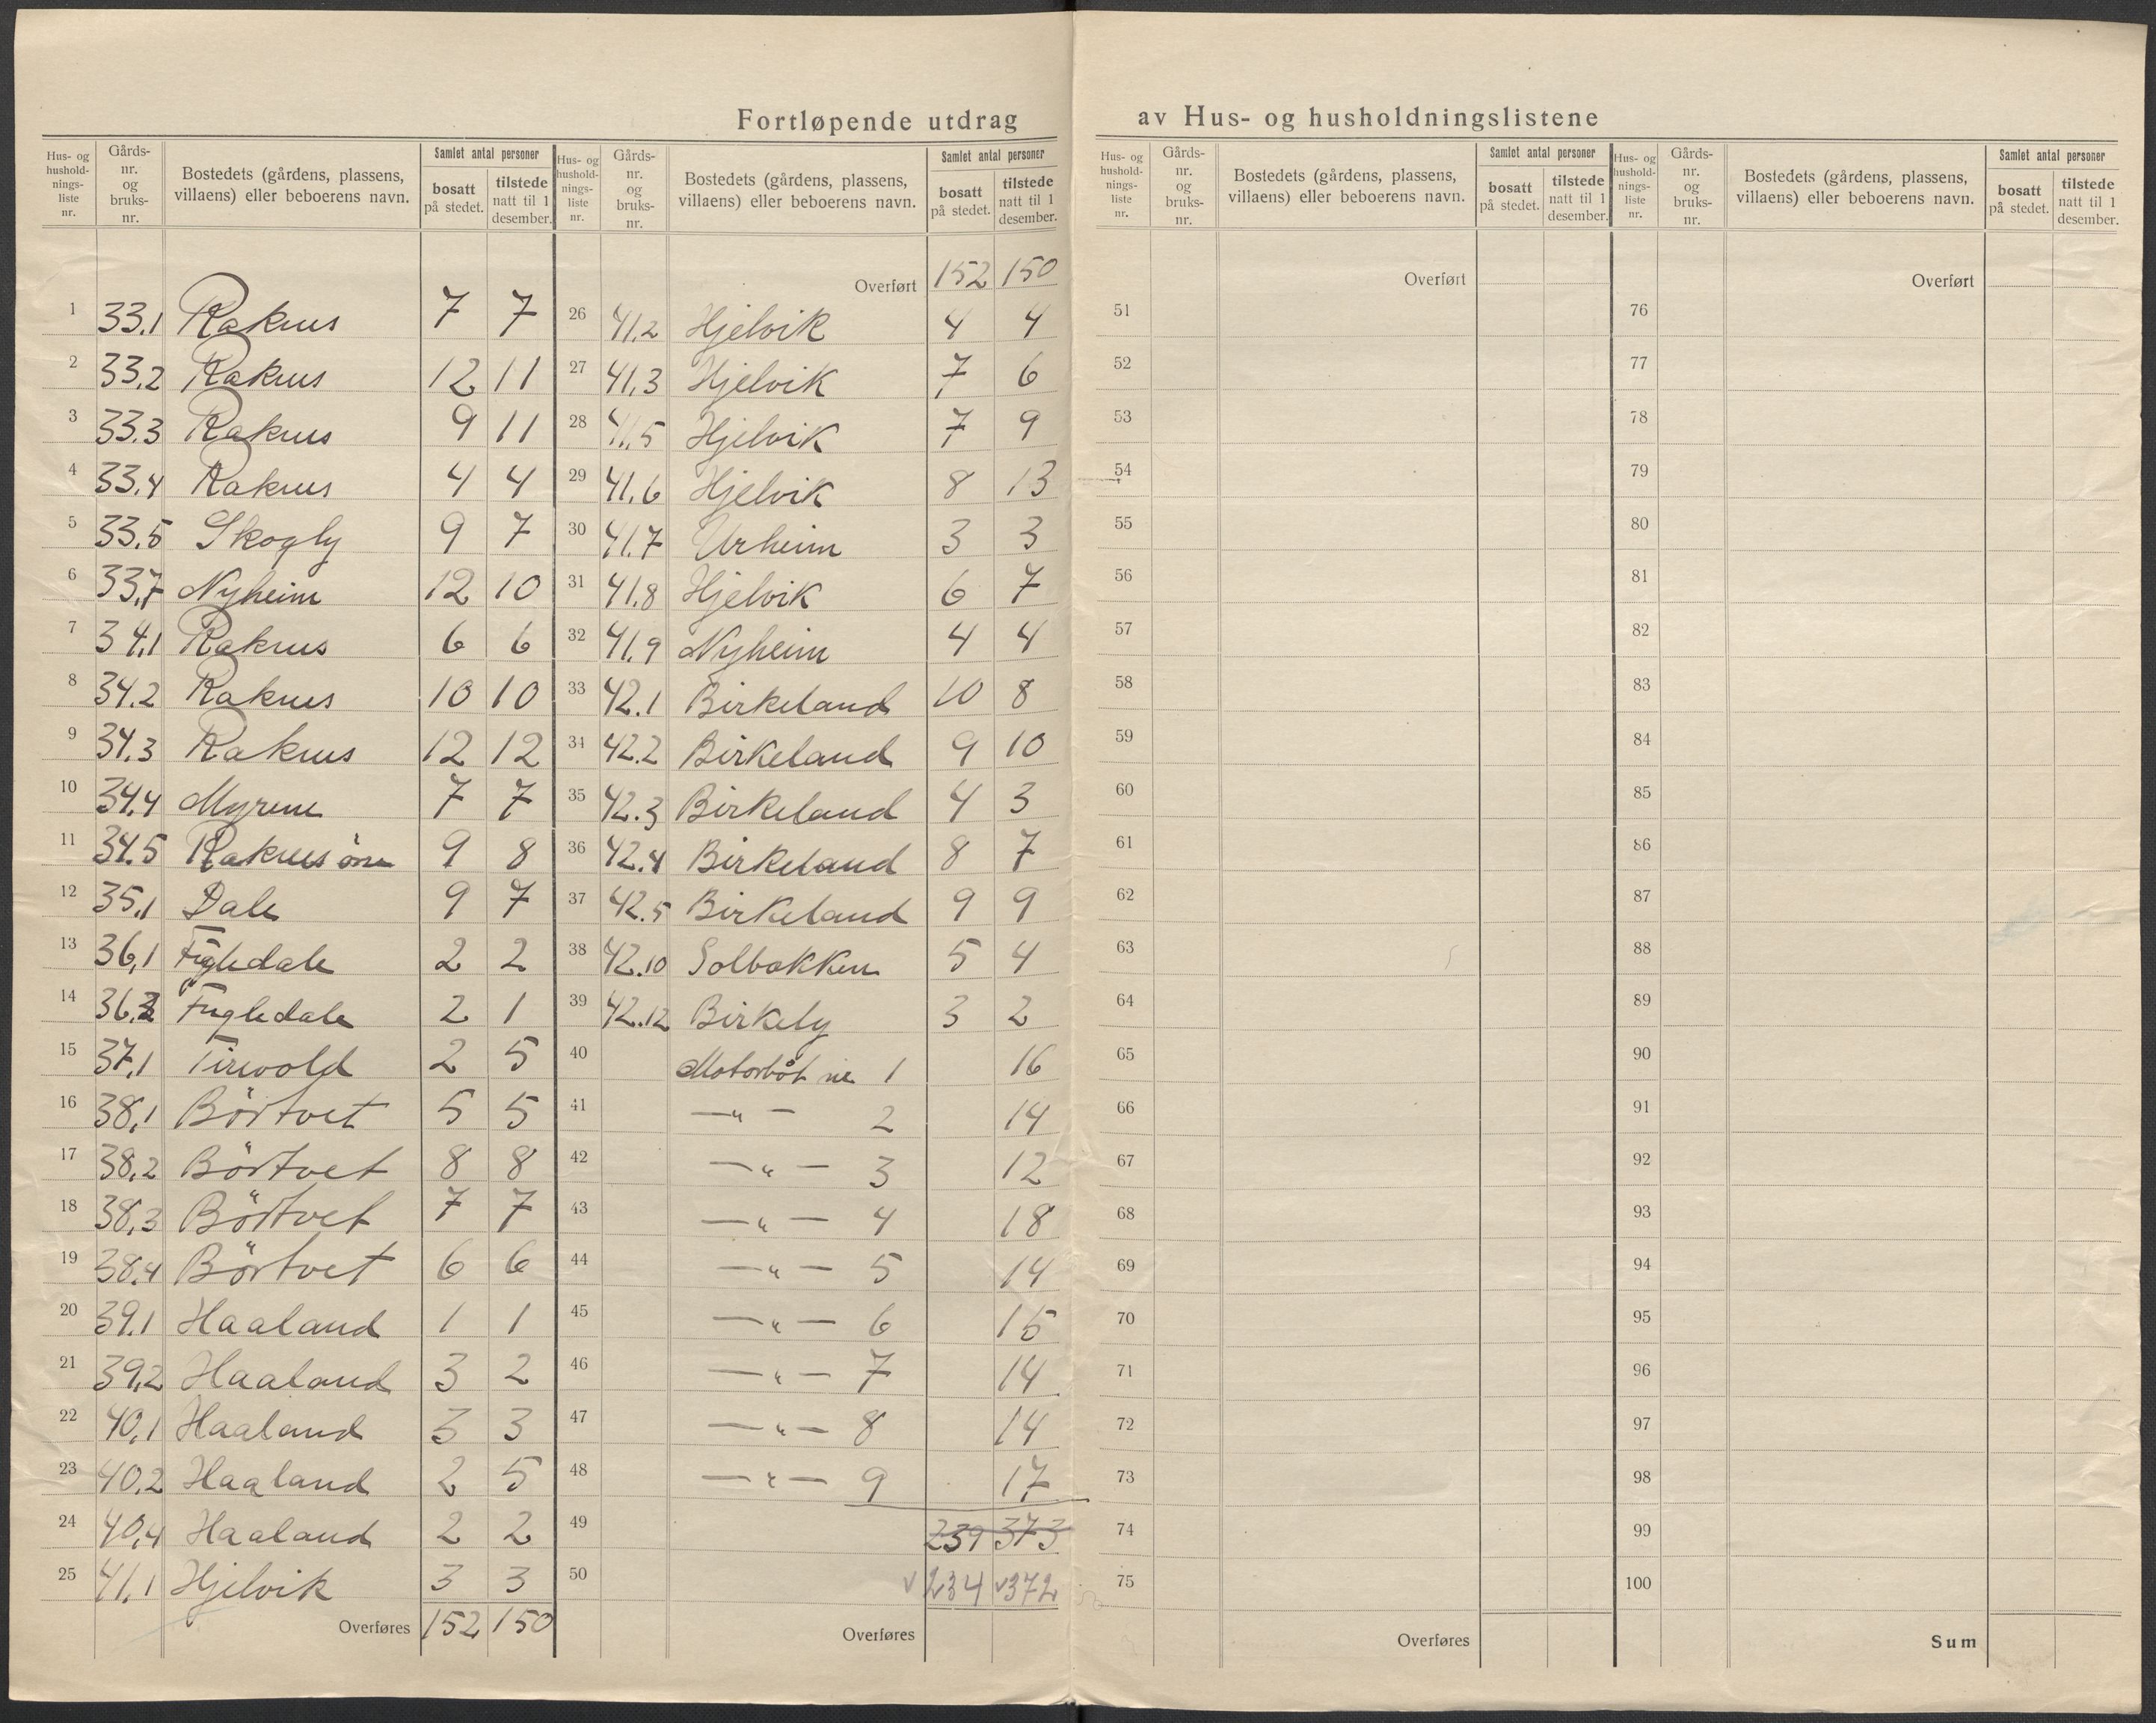 Fortløpende utdrag av Hus- og husholdningslistene
Hus- og hushold-nings-liste nr. Gårds-nr. og bruks-nr. Bostedets (gårdens, plassens, villaens) eller beboerens navn. Samlet antal personer bosatt på stedet. tilstede natt til 1 desember.
1 33.1 Raknes 7 7
2 33.2 Raknes 12 11
3 33.3 Raknes 9 11
4 33.4 Raknes 4 4
5 33.5 Skogly 9 7
6 33.7 Nyheim 12 10
7 34.1 Raknes 6 6
8 34.2 Raknes 10 10
9 34.3 Raknes 12 12
10 34.4 Myrene 7 7
11 34.5 Raknes 9 8
12 35.1 Dale 9 7
13 36.1 Fugledale 2 2
14 Fugledale 2 1
15 37.1 2 5
16 38.1 Börtvet 5 5
17 38.2 Börtvet 8 8
18 38.3 Börtvet 7 7
19 38.4 Börtvet 6 6
20 39.1 Haaland 1 1
21 39.2 Haaland 3 2
22 40.1 Haaland 3 3
23 40.2 Haaland 2 5
24 40.4 Haaland 2 2
25 41.1 Hjelvik 3 3
Overføres 152 150
Hus- og hushold-nings-liste nr. Gårds-nr. og bruks-nr. Bostedets (gårdens, plassens, villaens) eller beboerens navn. Samlet antal personer bosatt på stedet. tilstede natt til 1 desember.
Overført 152 150
26 41.2 Hjelvik 4 4
27 41.3 Hjelvik 7 6
28 41.5 Hjelvik 7 9
29 41.6 Hjelvik 8 13
30 41.7 Urheim 3 3
31 41.8 Hjelvik 6 7
32 41.9 Nyheim 4 4
33 42.1 Birkeland 10 8
34 42.2 Birkeland 9 10
35 42.3 Birkeland 4 3
36 42.4 Birkeland 8 7
37 42.5 Birkeland 9 9
38 42.10 Solbakken 5 4
39 42.12 Birkely 3 2
40 Motorbåt nr 1 16
41 —„— 2 14
42 —„— 3 12
43 —„— 4 18
44 —„— 5 14
45 —„— 6 15
46 —„— 7 14
47 —„— 8 14
48 —„— 9 17
49 239 373
50 v 234 v 372
Overføres
Hus- og hushold-nings-liste nr. Gårds-nr. og bruks-nr. Bostedets (gårdens, plassens, villaens) eller beboerens navn. Samlet antal personer bosatt på stedet. tilstede natt til 1 desember.
Overført
51
52
53
54
55
56
57
58
59
60
61
62
63
64
65
66
67
68
69
70
71
72
73
74
75
Overføres
Hus- og hushold-nings-liste nr. Gårds-nr. og bruks-nr. Bostedets (gårdens, plassens, villaens) eller beboerens navn. Samlet antal personer bosatt på stedet. tilstede natt til 1 desember.
Overført
76
77
78
79
80
81
82
83
84
85
86
87
88
89
90
91
92
93
94
95
96
97
98
99
100
Sum